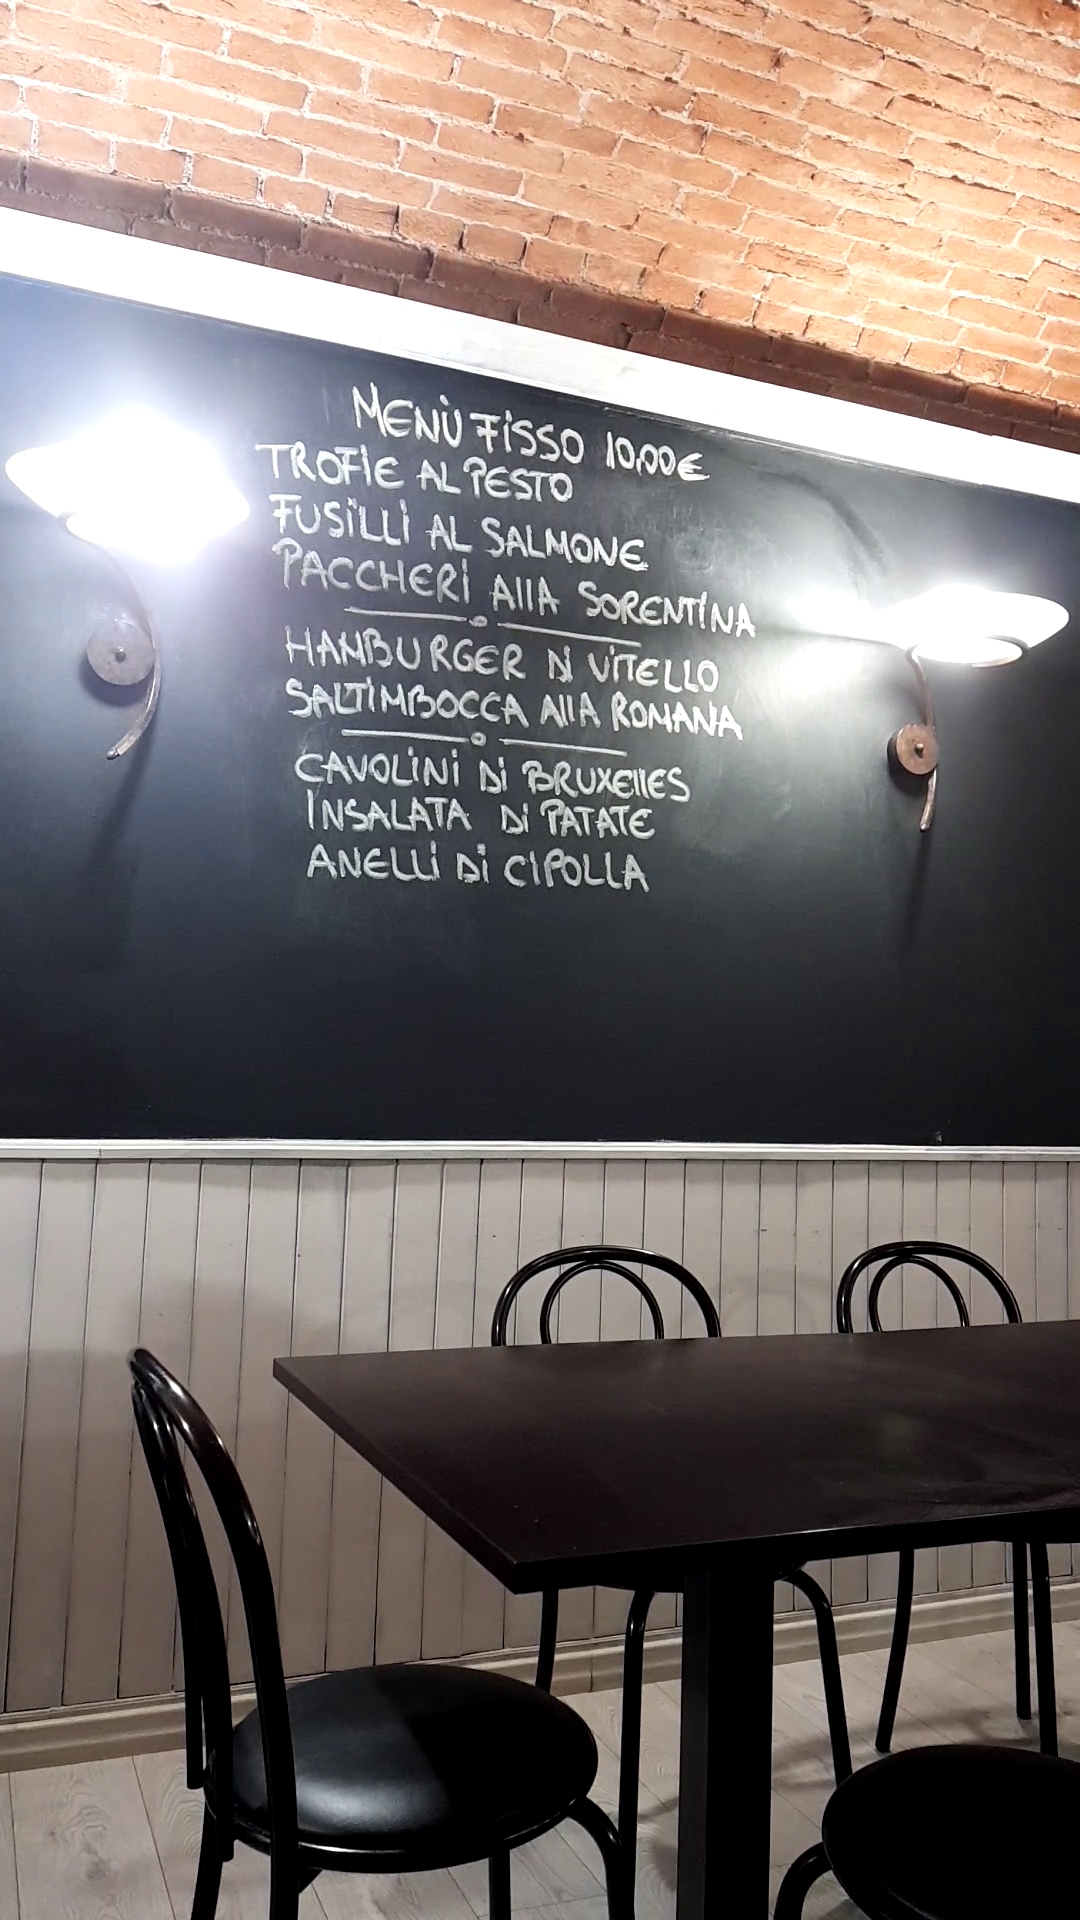 MENÙ FISSO 10,00€
TROFIE AL PESTO
FUSILLI AL SALMONE
PACCHERI ALLA SORENTINA
HAMBURGER DI VITELLO
SALTIMBOCCA ALLA ROMANA
CAVOLINI DI BRUXELLES
INSALATA DI PATATE
ANELLI DI CIPOLLA